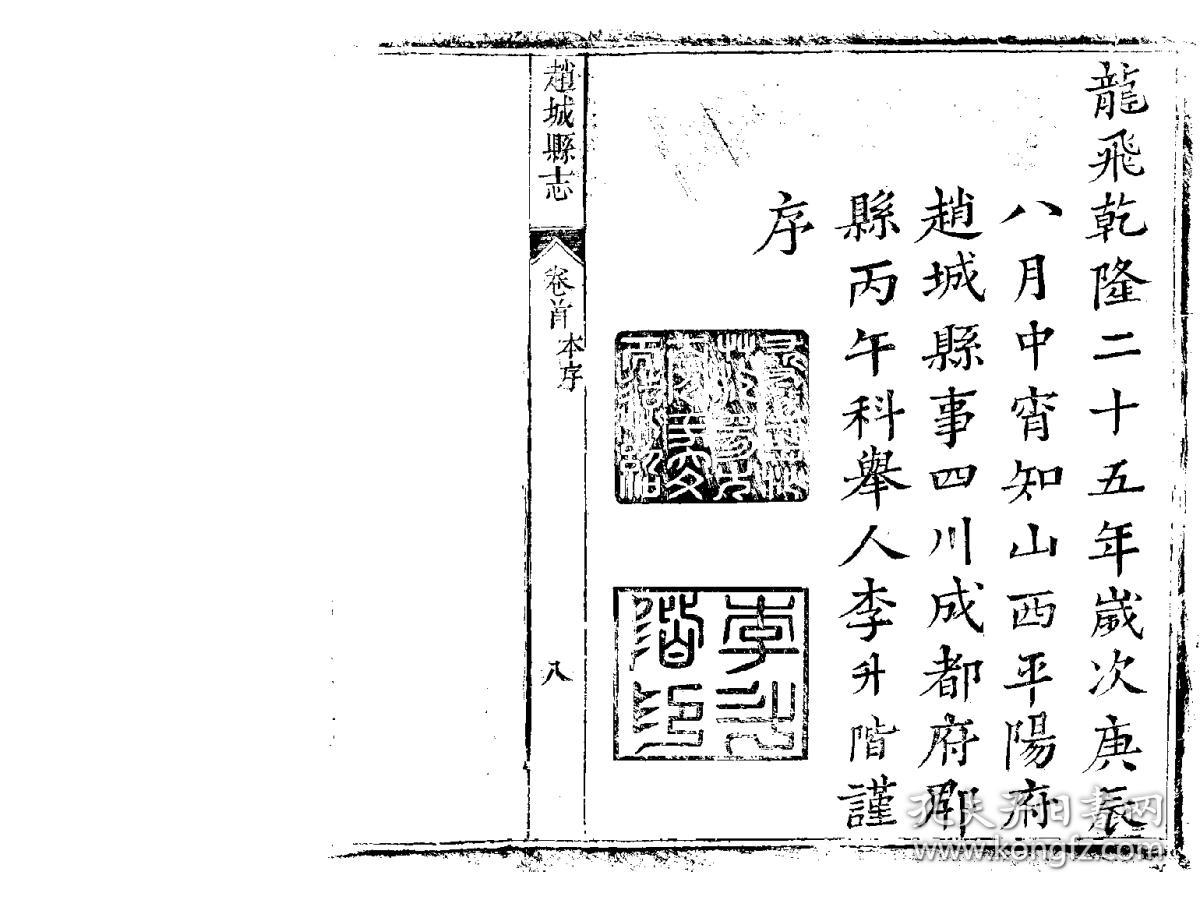 龍飛乾隆二十五年歲次庚辰
八月中宵知山西平陽府
趙城縣事四川成都府郫
縣丙午科舉人李升階謹
序
李升階印
趙城縣志
卷首
本序
八
孔夫子旧書网
www.kongfz.com